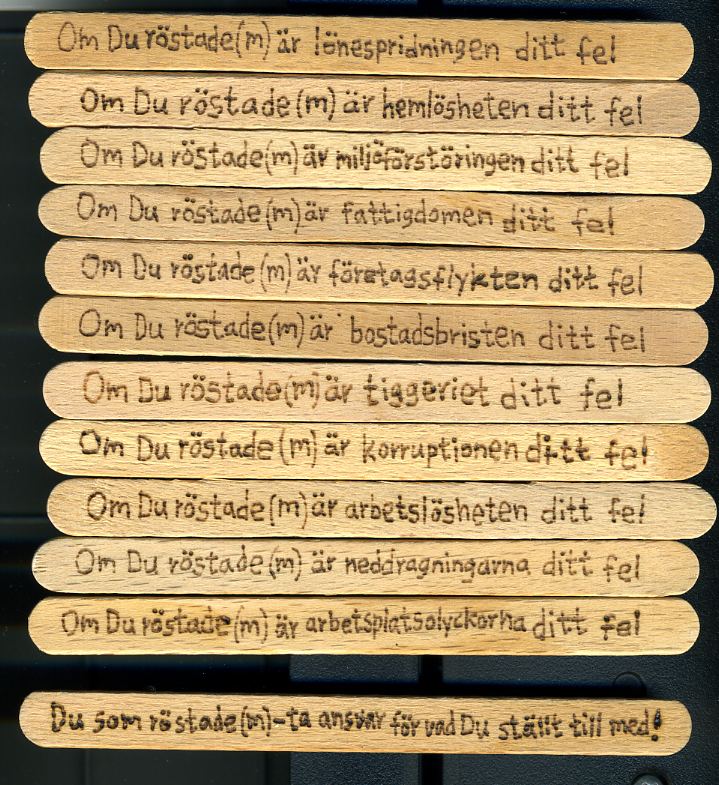 Om Du röstade(m) är lönespridningen ditt fel
Om Du röstade(m) är hemlösheten ditt fel
Om Du röstade(m) är miljöförstöringen ditt fel
Om Du röstade(m) är fattigdomen ditt fel
Om Du röstade(m) är företagsflykten ditt fel
Om Du röstade(m) är bostadsbristen ditt fel
Om Du röstade(m) är tiggeriet ditt fel
Om Du röstade(m) är korruptionen ditt fel
Om Du röstade(m) är arbetslösheten ditt fel
Om Du röstade(m) är neddragningarna ditt fel
Om Du röstade(m) är arbetsplatsolyckorna ditt fel
Du som röstade(m)-ta ansvar för vad Du ställt till med!